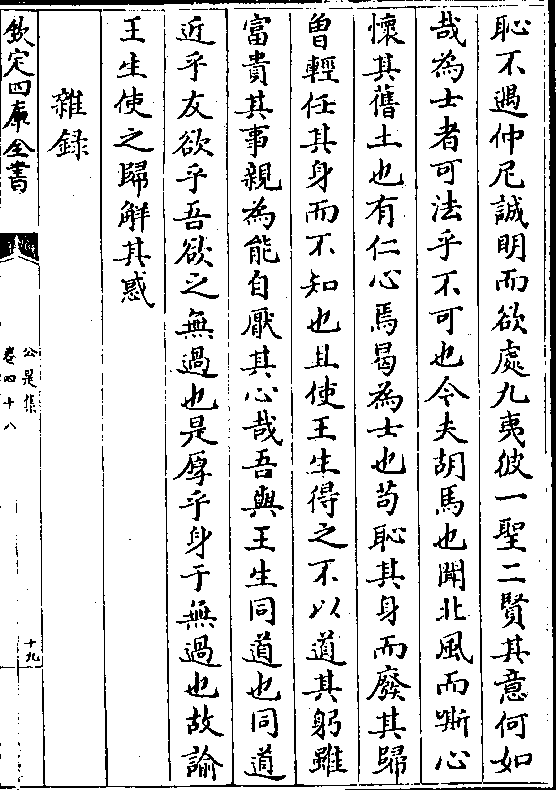 恥不遇仲尼誠明而欲處九夷彼一聖二賢其意何如
哉為士者可法乎不可也今夫胡馬也聞北風而嘶心
懷其舊土也有仁心焉曷為士也茍恥其身而廢其歸
曾輕任其身而不知也且使王生得之不以道其躬雖
富貴其事親為能自厭其心哉吾與王生同道也同道
近乎友欲乎吾欲之無過也是厚乎身于無過也故諭
王生使之歸解其惑
雜録
欽定四庫全書
公是集
卷四十八
十九